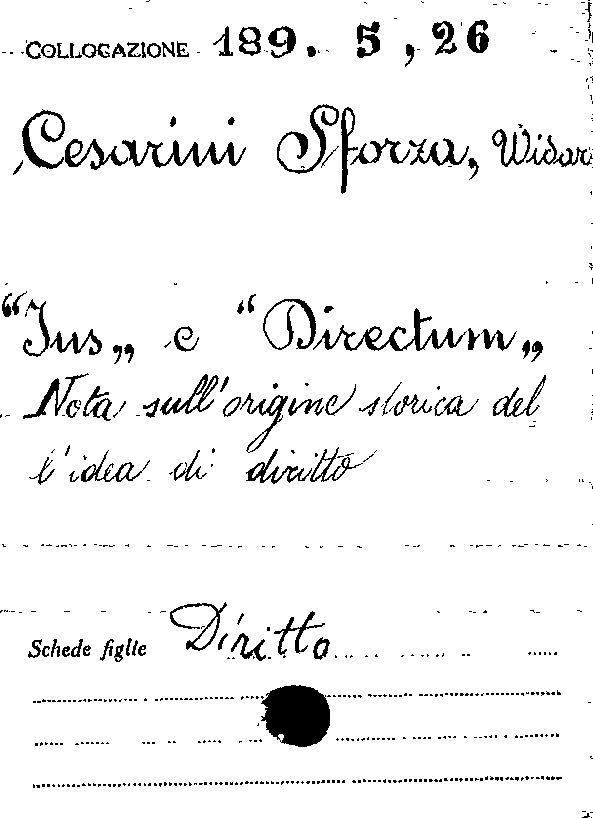 COLLOCAZIONE 189. 5, 26
Cesarini Sforza, Widar
"Jus„ e "Directum„
Nota sull'origine storica del
l'idea di diritto
Schede figlie Diritto